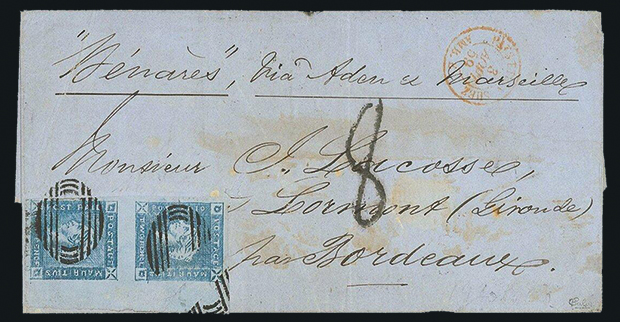 "Bénarès", Via Aden et Marseille
8
Monsieur J. Lacosse,
Lormont (Gironde)
par Bordeaux.
POSTAGE
MAURITIUS
POSTAGE
MAURITIUS